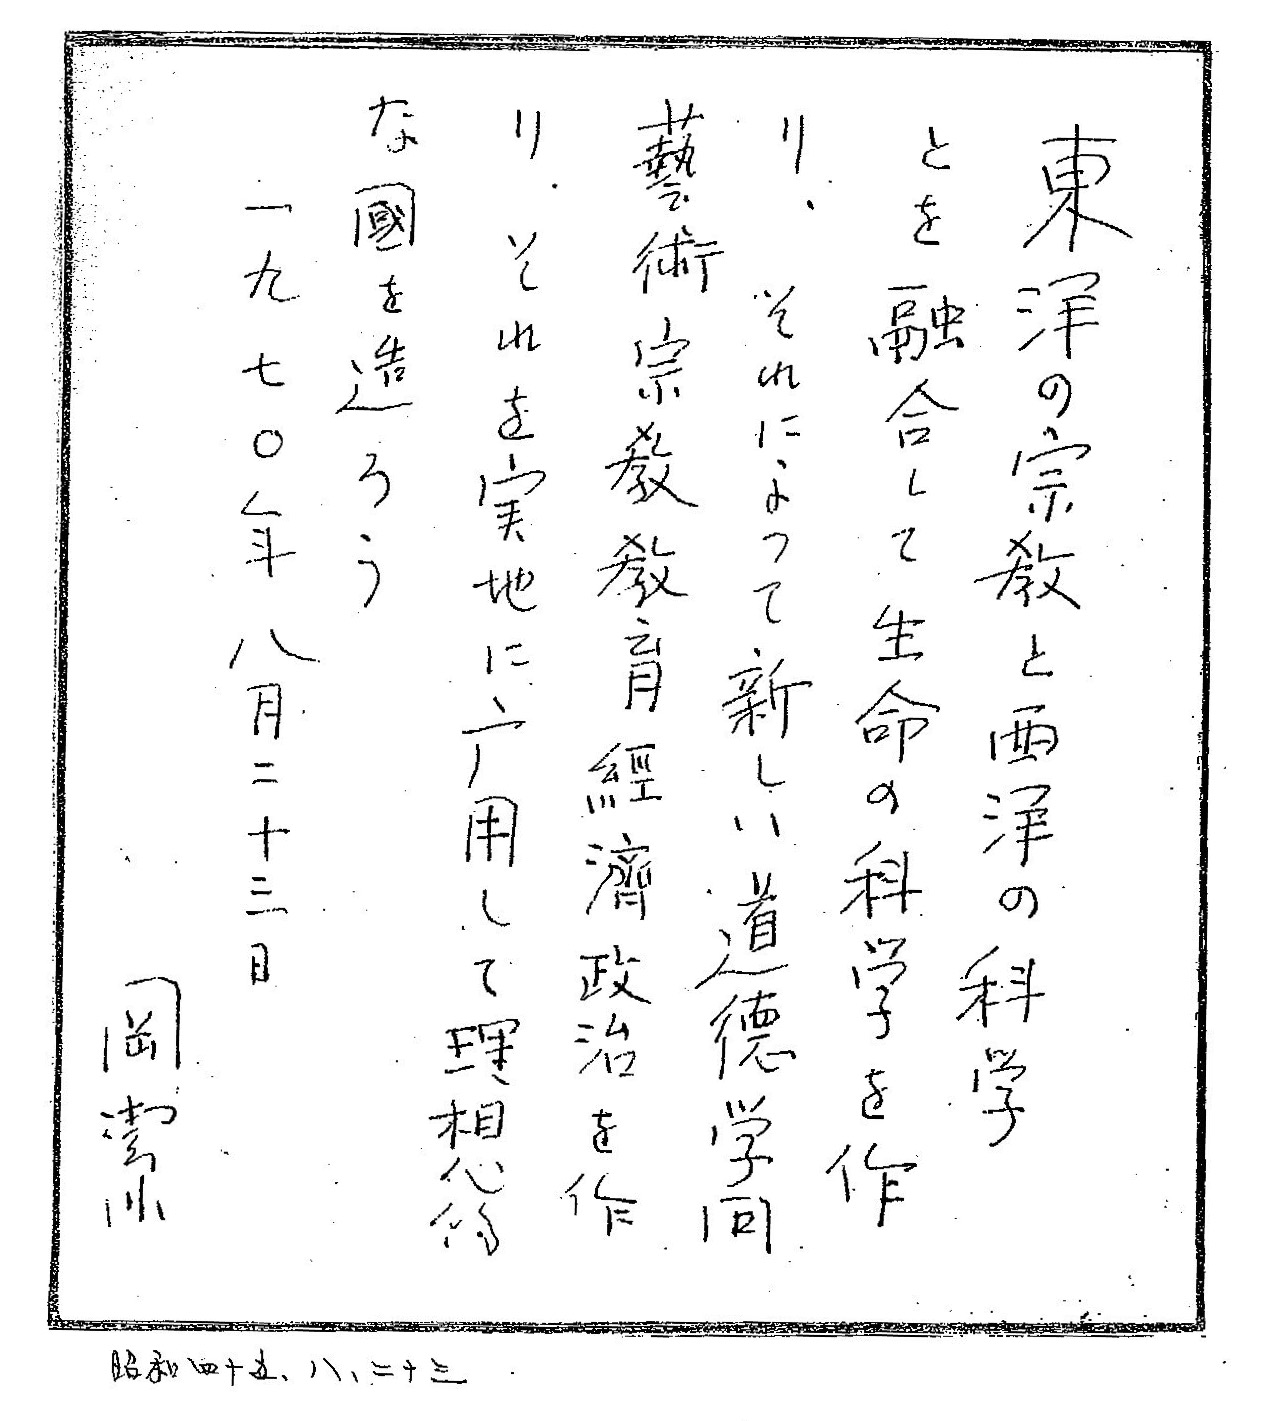 東洋の宗教と西洋の科学
とを融合して生命の科学を作
り、それによって新しい道徳学問
藝術宗教教育經濟政治を作
り、それを実地に应用して理想的
な國を造ろう
一九七〇年八月二十三日
岡潔
昭和四十五、八、二十三